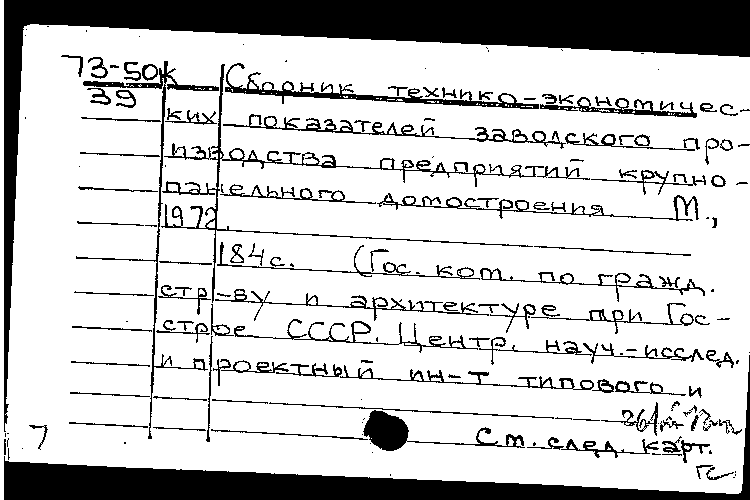 73-50к Сборник технико-экономичес-
39
ких показателей заводского про-
изводства предприятий крупно-
панельного домостроения М.,
1972.
184с. (Гос. ком. по гражд.
стр-ву и архитектуре при Гос-
строе СССР. Центр. науч.-исслед.
и проектный ин-т типового и
См. след. карт.
7
гс